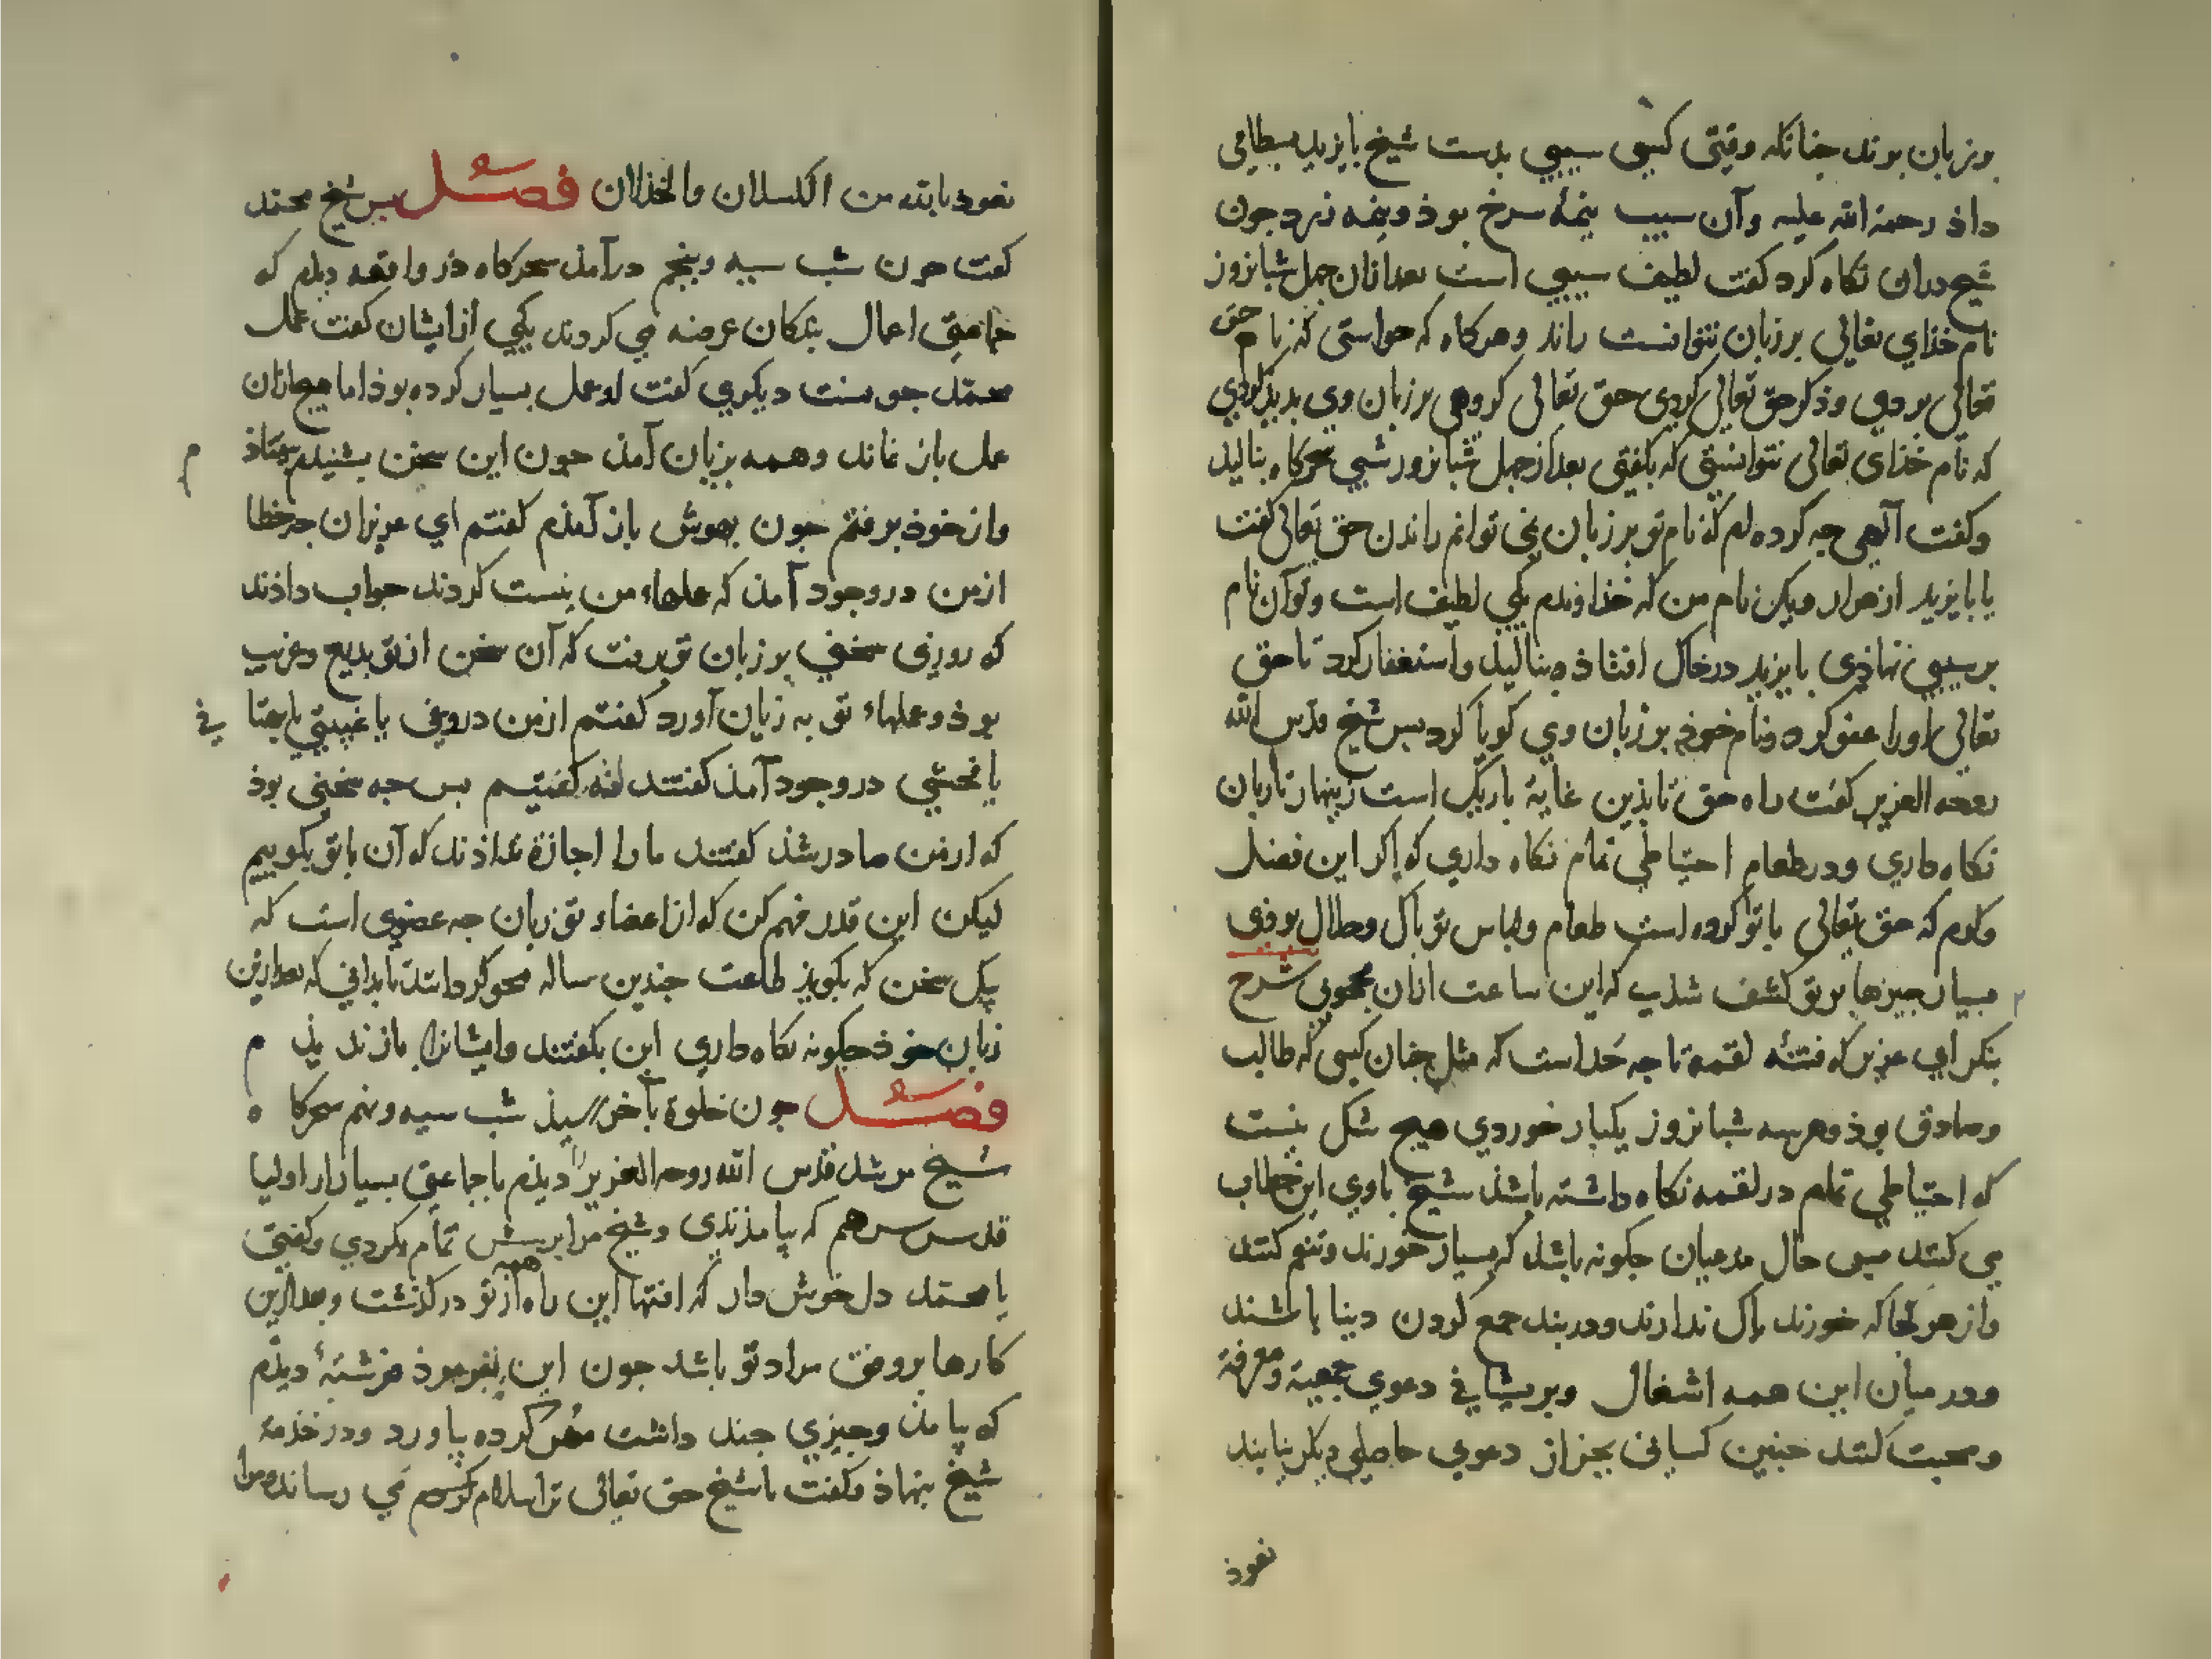 وزبان بوند جنانکه وقیتی کسی سیبی بدست شیخ بایزید بسطامی
داذ رحمة الله علیه وآن سیب نیمهٔ سرخ بوذ ونیمه زرد جون
شیخ دران نکاه کرد کفت لطیف سیبی است بعد ازان جهل شبانروز
نام خذای تعالی برزبان نتوانست راند وهرکاه که خواستی که نام حق
تعالی بردی وذکر حق تعالی کردی حق تعالی کروهی برزبان وی بدید کردی
که نام خذای تعالی نتوانستی که بکفتی بعد از جهل شبانروز شبی سحرکاه بنالید
وکفت آلهی جه کرده ام که نام تو برزبان نمی توانم راندن حق تعالی کفت
یا بایزید از هزار ویکن نام من که خذاوندم یکی لطیف است وتو آن نام
بر سیبی نهاذی بایزید درخاک افتاذ وبنالیذ واستغفار کرد تا حق
تعالی اورا عفو کرده ونام خوذ برزبان وی کویا کرد بس شیخ قدس الله
روحه العزیز کفت راه حق تا بذین غایة باریک است زینهار تا زبان
نکاه داری ودر طعام احتیاطی تمام نکاه داری که اکر این فضل
وکرم که حق تعالی باتو کرده است طعام ولباس تو باک وحلال بوذی
بسیار جیزها برتو کشف شدی که این ساعت ازان محجوبی شرح
بنکر ای عزیز که فتنهٔ لقمه تا جه حد است که مثل جنان کسی که طالب
وصادق بوذ وهر سه شبانروز یکبار خوردی هیج شک نیست
که احتیاطی تمام در لقمه نکاه داشته باشذ شیخ باوی این خطاب
می کند بس حال مدعیان جکونه باشد که بسیار خورند وتنعم کنند
واز هر کجا که خورند باک ندارند ودر بند جمع کردن دنیا باشند
ودر میان این همه اشغال وبریشانی دعوی جمعیة ومعرفة
ومحبت کنند جنین کسانی بجز از دعوی حاصلی دیکر نیابند
نعوذ
نعوذ بالله من الکسلان والخذلان فصل بس شیخ محمد
کفت جون شب سیه وبنجم درآمذ سحرکاه در واقعه دیدم که
جماعتی اعمال بندکان عرضه می کردند یکی ازایشان کفت عمل
محمد جونست دیکری کفت او عمل بسیار کرده بوذ اما هیج ازان
عمل باز نماند وهمه بزیان آمذ جون این سخن بشنیدم بیفتاذم
واز خوذ برفتم جون بهوش باز آمذم کفتم ای عزیزان جه خطا
ازمن در وجود آمذ که عملهاء من نیست کردند جواب داذند
که روزی سخنی برزبان تو برفت که آن سخن ازتو بدیع وغریب
بوذ وعملهاء تو به زیان آورد کفتم ازمن دروغی یا غیبتی یا بهتانی
یا فحشی در وجود آمذ کفتند نه کفتم بس جه سخنی بوذ
که ازمن صادر شذ کفتند مارا اجازة نداذند که آن باتو بکوییم
لیکن این قدر فهم کن که از اعضاء تو زبان جه عضوی است که
بیک سخن که بکویذ طاعت جندین ساله محو کرداند تا بدانی که بعد ازین
زبان خوذ جکونه نکاه داری این بکفتند وایشانرا باز ندیذم
فصل جون خلوة بآخر رسیذ شب سیه ونهم سحرکاه
شیخ مرشد قدس الله روحه العزیز را دیذم با جماعتی بسیار از اولیا
قدس سرهم که بیامذندی وشیخ مرا برسش تمام بکردی وکفتی
یا محمد دل خوش دار که انتها این راه همه ازتو درکذشت وبعد ازین
کارها بروفق مراد تو باشد جون این بفرموذ فرشتهٔ دیذم
که بیامذ وجیزی جند داشت مهر کرده بیاورد ودر خدمة
شیخ بنهاذ وکفت یا شیخ حق تعالی ترا سلام می رساند ومرا